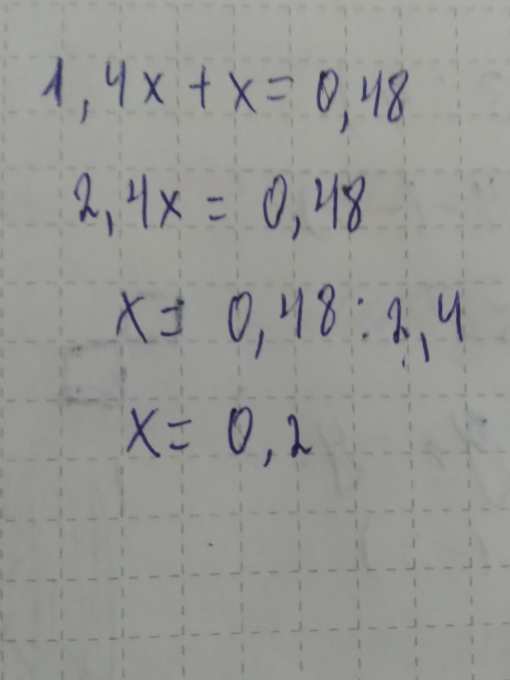 1,4x + x = 0,48
2,4x = 0,48
x = 0,48 : 2,4
x = 0,2